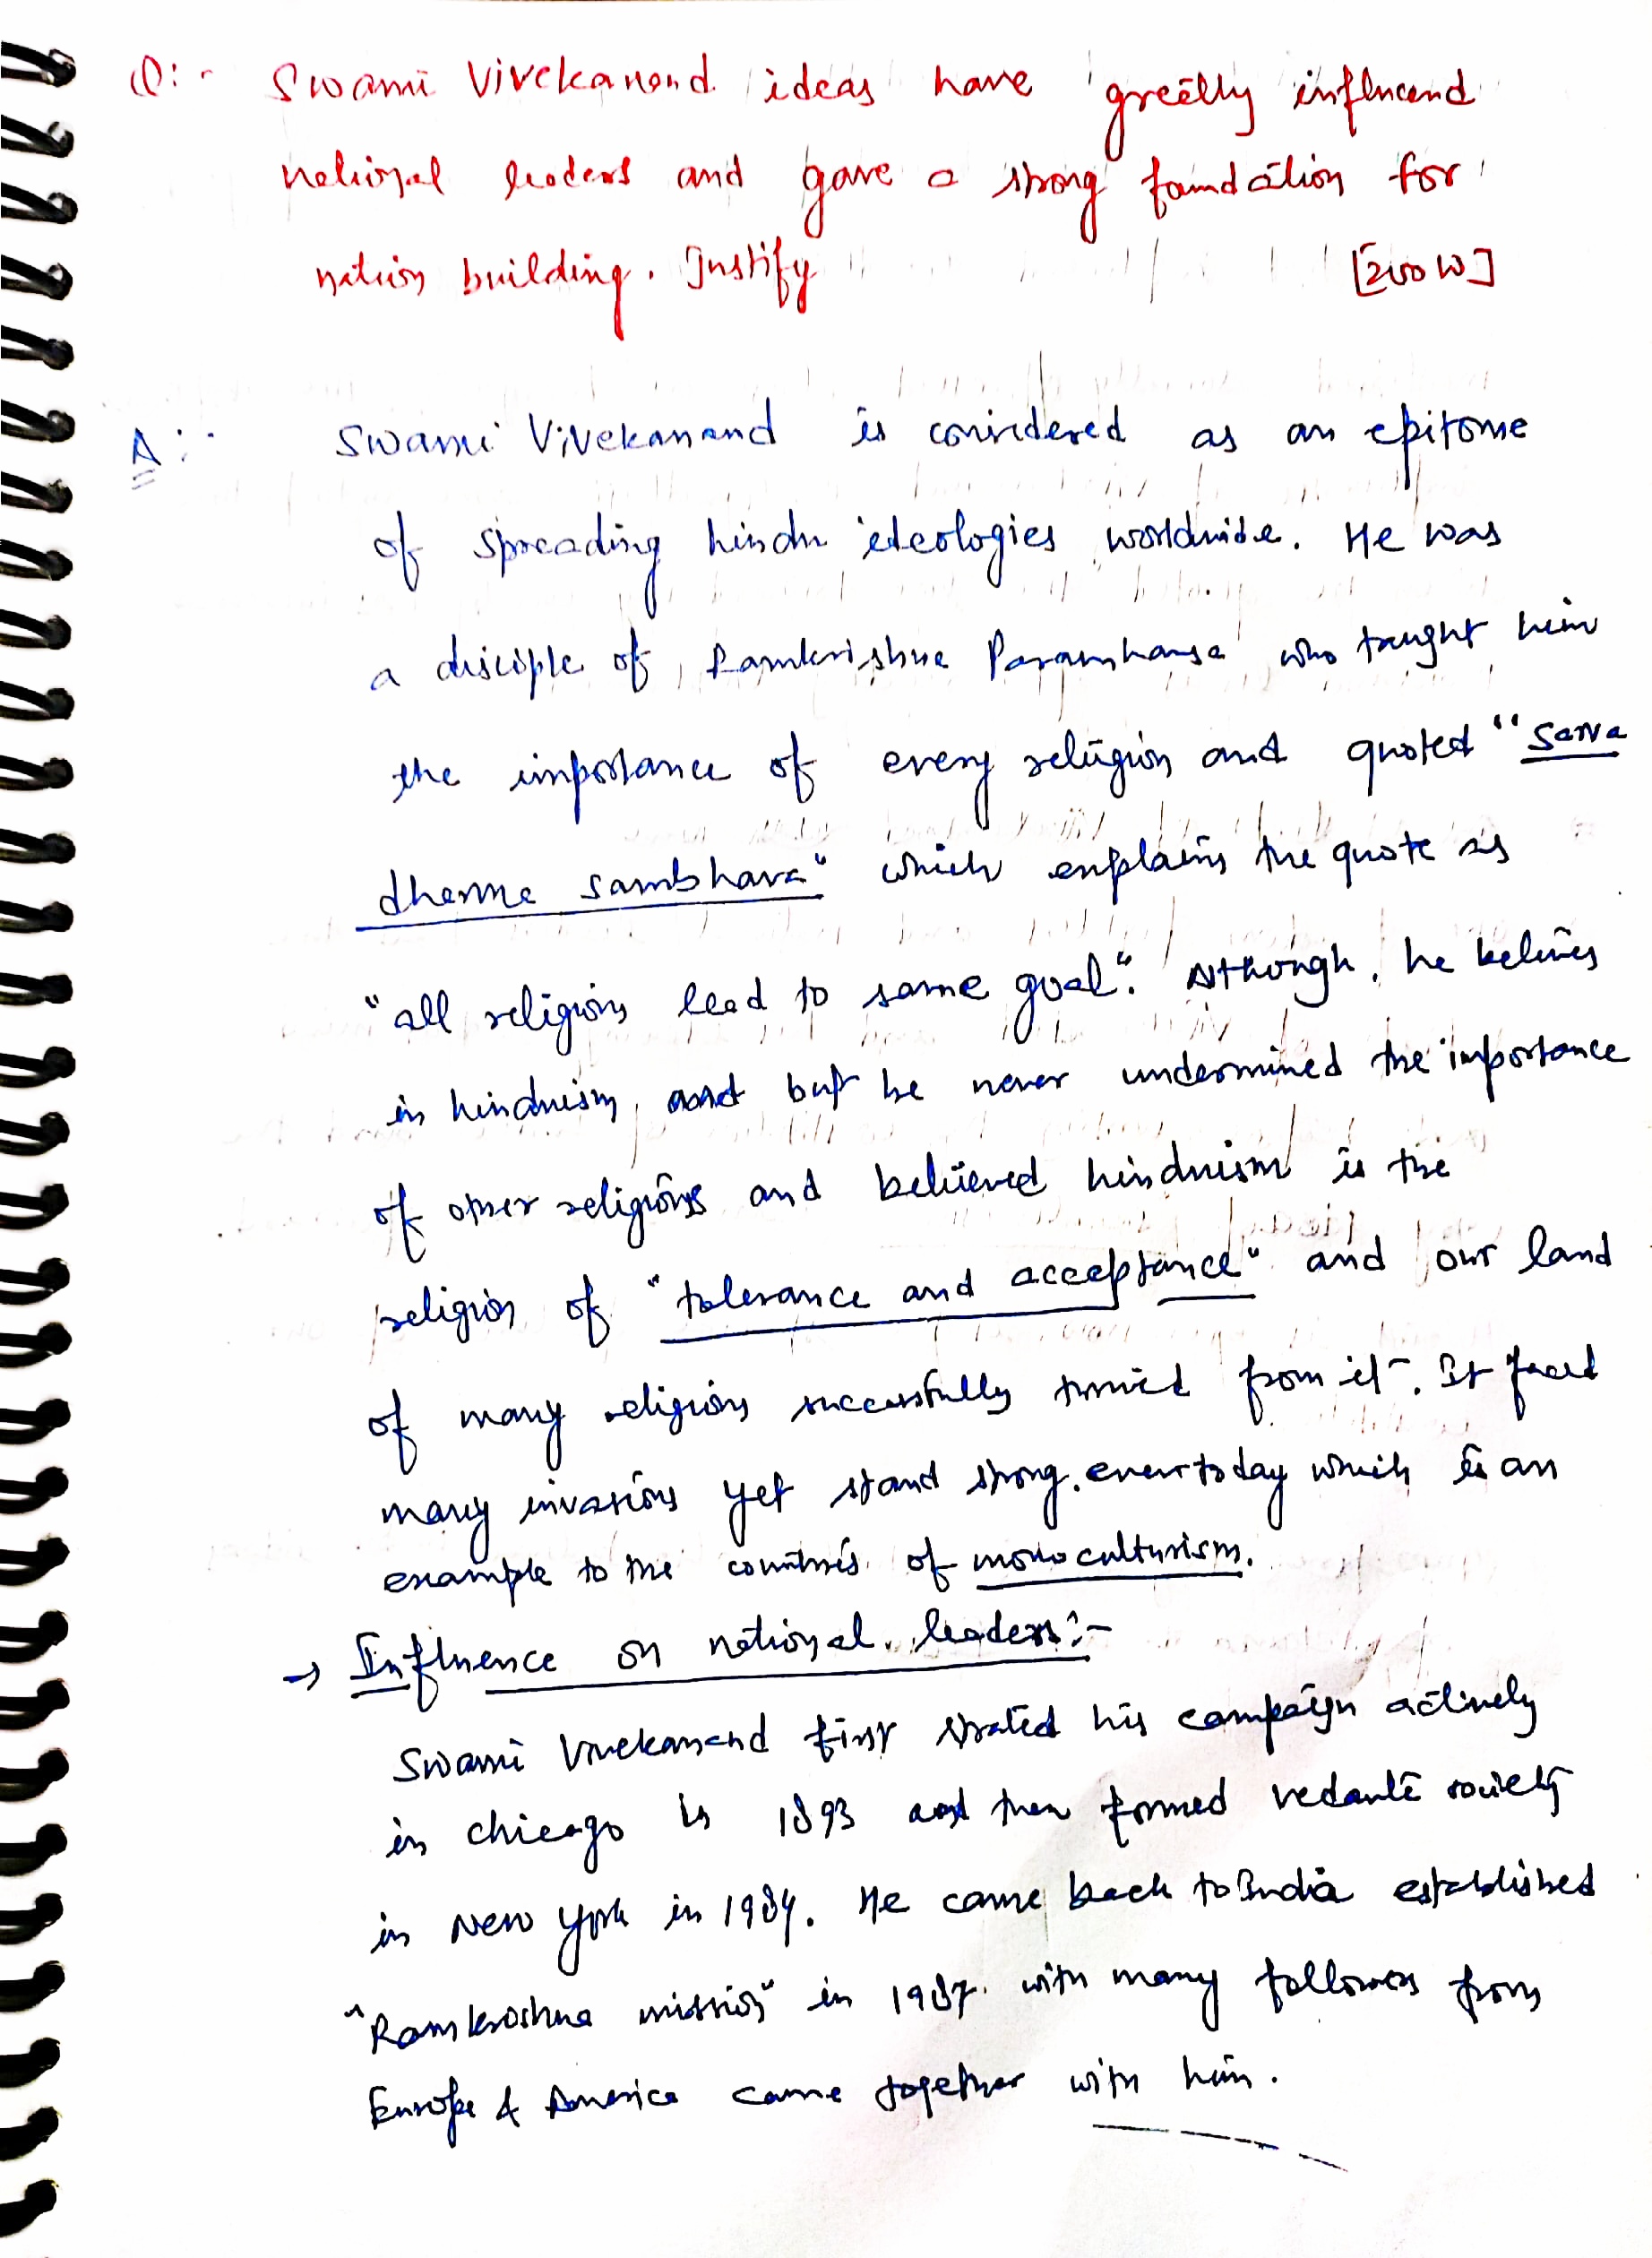 Q:- Swami Vivekanand ideas have greatly influcend
national leaders and gave a strong foundation for
nation building. Justify [200 W]
A:- Swami Vivekanand is considered as an epitome
of spreading hindu ideologies worldwide. He was
a disciple of Ramkrishna Paramhansa who taught him
the importance of every religion and quoted "Sarva
dharma sambhava" which explains the quote as
"all religions lead to same goal". Although, he belives
in hinduism, but he never undermined the importance
of other religions and believed hinduism is the
religion of "tolerance and acceptance" and our land
of many religions successfully from it. It faced
many invasions yet stand strong even today which is an
example to the countries of monoculturism.
→ Influence on national leaders:-
Swami Vivekanand first strated his campaign actively
in chicago in 1893 and then formed vedanta society
in New york in 1984. He came back to India established
"Ramkroshna mission" in 1987 with many followers from
Europe & America came together with him.